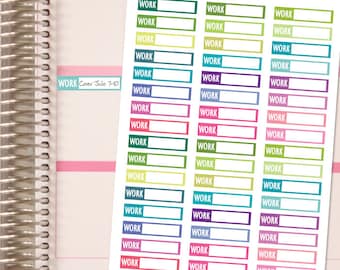 WORK Cover Julie
WORK WORK WORK
WORK WORK WORK
WORK WORK WORK
WORK WORK WORK
WORK WORK WORK
WORK WORK WORK
WORK WORK WORK
WORK WORK WORK
WORK WORK WORK
WORK WORK WORK
WORK WORK WORK
WORK WORK WORK
WORK WORK WORK
WORK WORK WORK
WORK WORK WORK
WORK WORK WORK